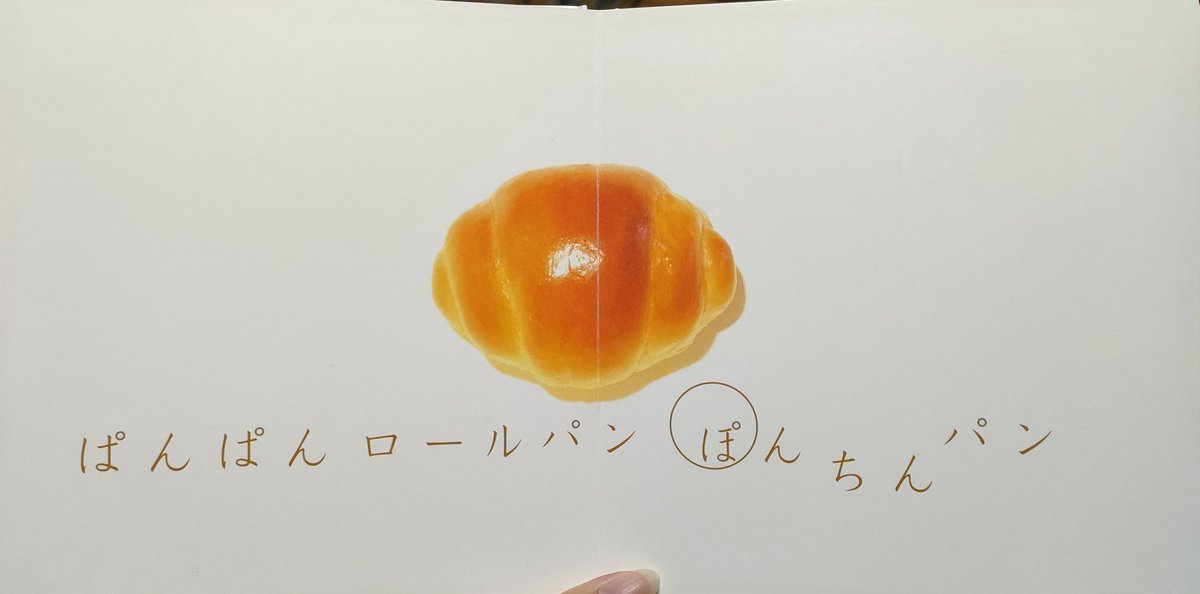 ぱんぱんロールパン ぽんちんパン